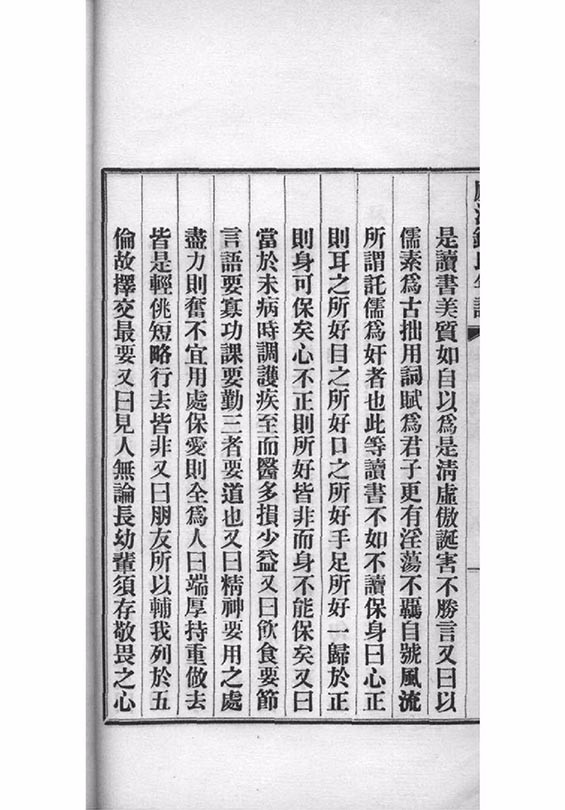 是讀書美質如自以爲是淸虛傲誕害不勝言又曰以
儒素爲古拙用詞賦爲君子更有淫蕩不覊自號風流
所謂託儒爲奸者也此等讀書不如不讀保身曰心正
則耳之所好目之所好口之所好手足所好一歸於正
則身可保矣心不正則所好皆非而身不能保矣又曰
當於未病時調護疾至而醫多損少益又曰飮食要節
言語要寡功課要勤三者要道也又曰精神要用之處
盡力則奮不宜用處保愛則全爲人曰端厚持重做去
皆是輕佻短略行去皆非又曰朋友所以輔我列於五
倫故擇交最要又曰見人無論長幼輩須存敬畏之心